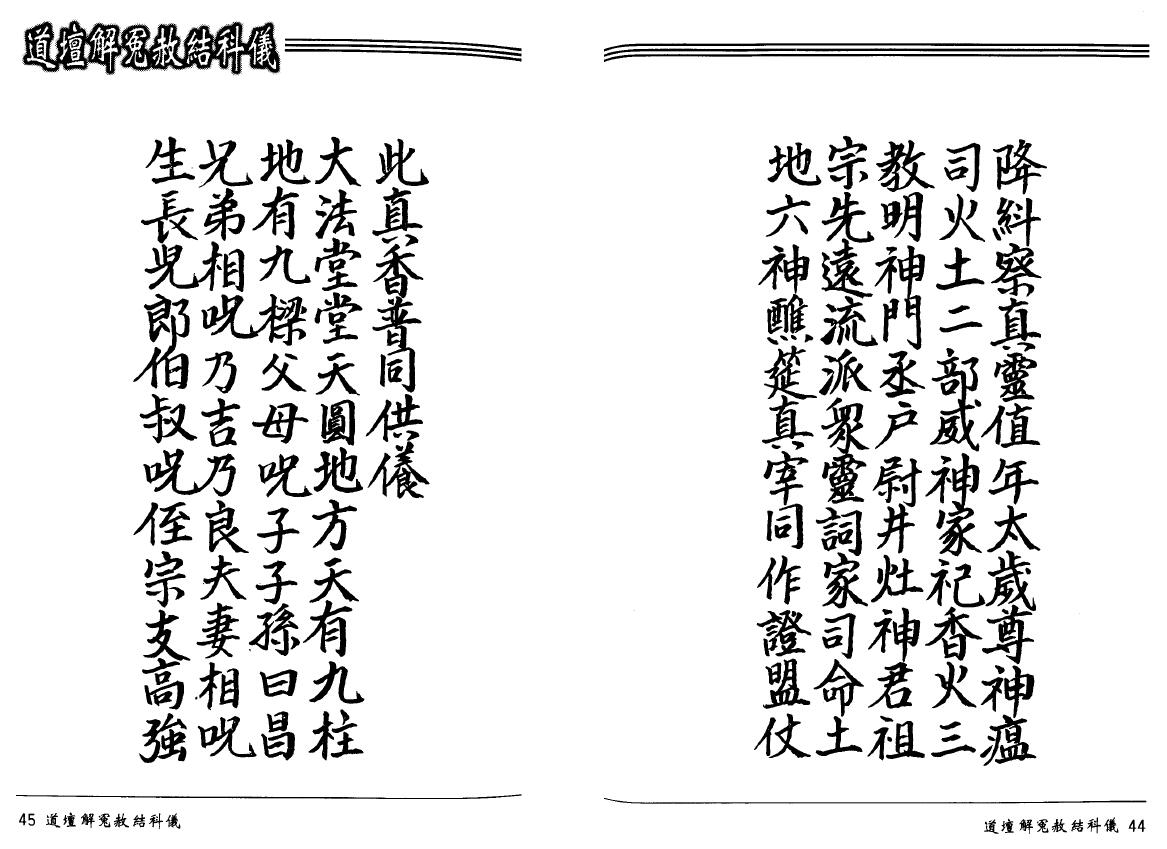 降糾察真靈值年太歲尊神瘟
司火土二部威神家祀香火三
教明神門丞戶尉井灶神君祖
宗先遠流派眾靈詞家司命土
地六神醮筵真宰同作證盟仗
道壇解冤赦結科儀 44
道壇解冤赦結科儀
此真香普同供養
大法堂堂天圓地方天有九柱
地有九樑父母呪子子孫曰昌
兄弟相呪乃吉乃良夫妻相呪
生長兒郎伯叔呪侄宗支高強
45 道壇解冤赦結科儀